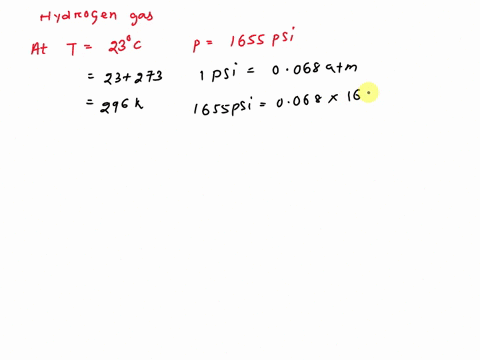 Hydrogen gas
At T = 23°C P = 1655 psi
= 23+273 1 psi = 0.068 atm
= 296 k 1655 psi = 0.068 × 16